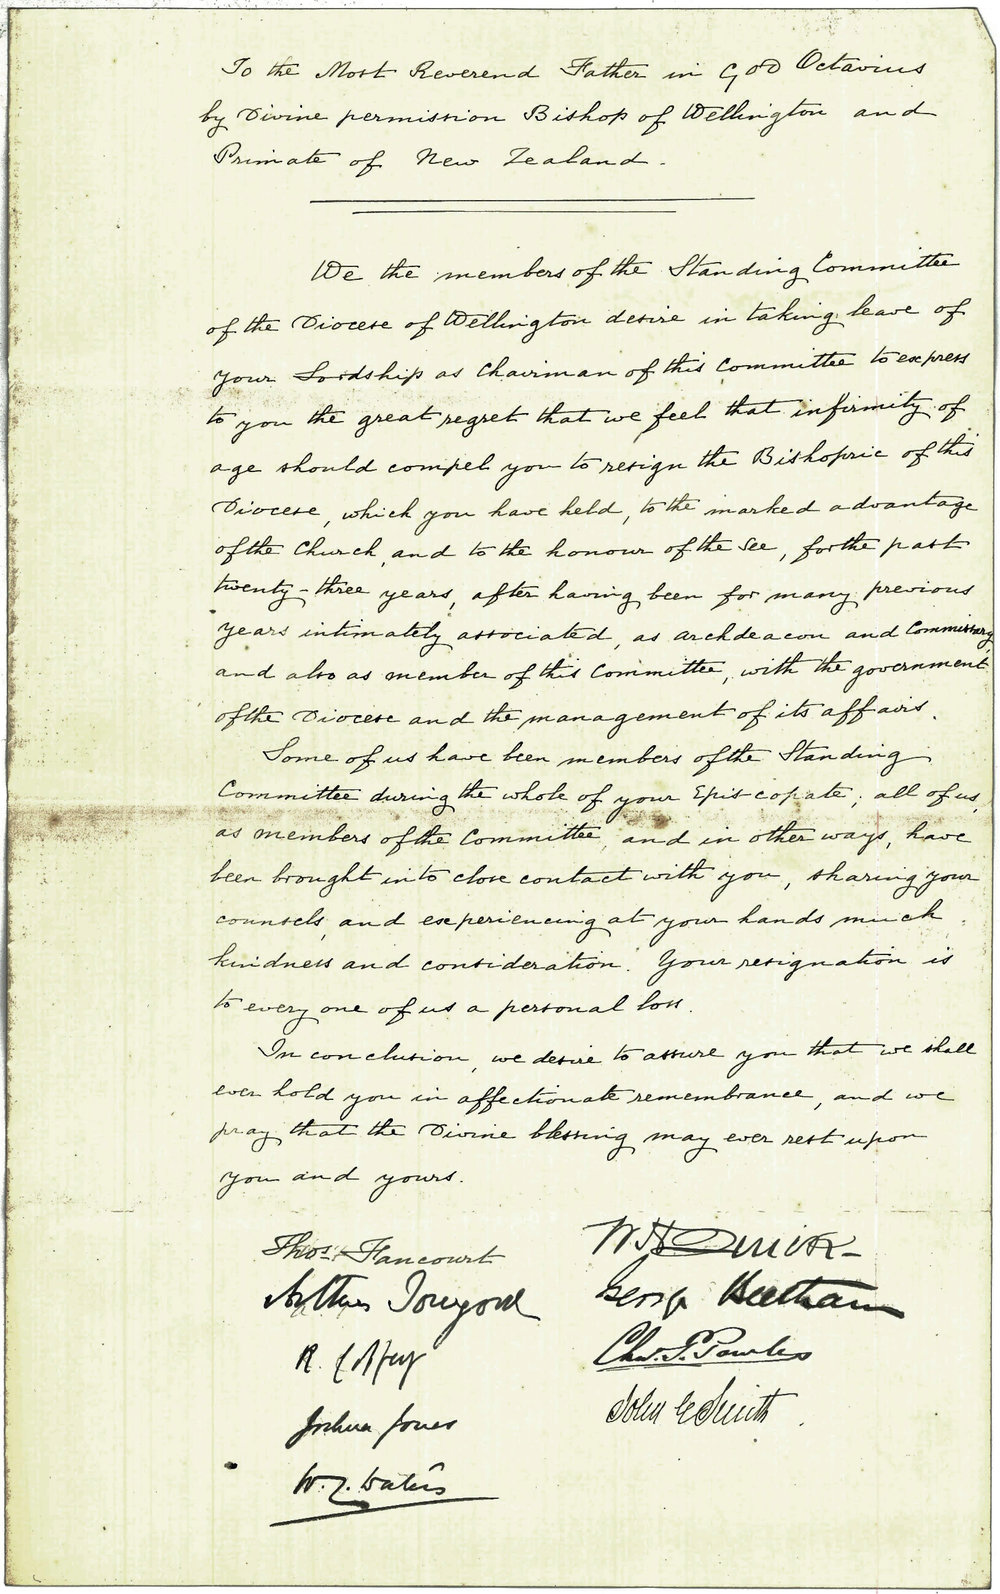 To the Most Reverend Father in God Octavius
by Divine permission Bishop of Wellington and
Primate of New Zealand.
We the members of the Standing Committee
of the Diocese of Wellington desire in taking leave of
your Lordship as Chairman of this Committee to express
to you the great regret that we feel that infirmity of
age should compel you to resign the Bishopric of this
Diocese, which you have held, to the marked advantage
of the Church, and to the honour of the See, for the past
twenty-three years, after having been for many previous
years intimately associated, as Archdeacon and Commissary,
and also as member of this Committee, with the government
of the Diocese and the management of its affairs.
Some of us have been members of the Standing
Committee during the whole of your Episcopate; all of us,
as members of the Committee, and in other ways, have
been brought into close contact with you, sharing your
counsels, and experiencing at your hands much
kindness and consideration. Your resignation is
to every one of us a personal loss.
In conclusion, we desire to assure you that we shall
ever hold you in affectionate remembrance, and we
pray that the Divine blessing may ever rest upon
you and yours.
Thos. Fancourt
Arthur Towgood
R. Coffey
Joshua Jones
W. J. Waters
George Beetham
Chas. P. Powles
John G Smith